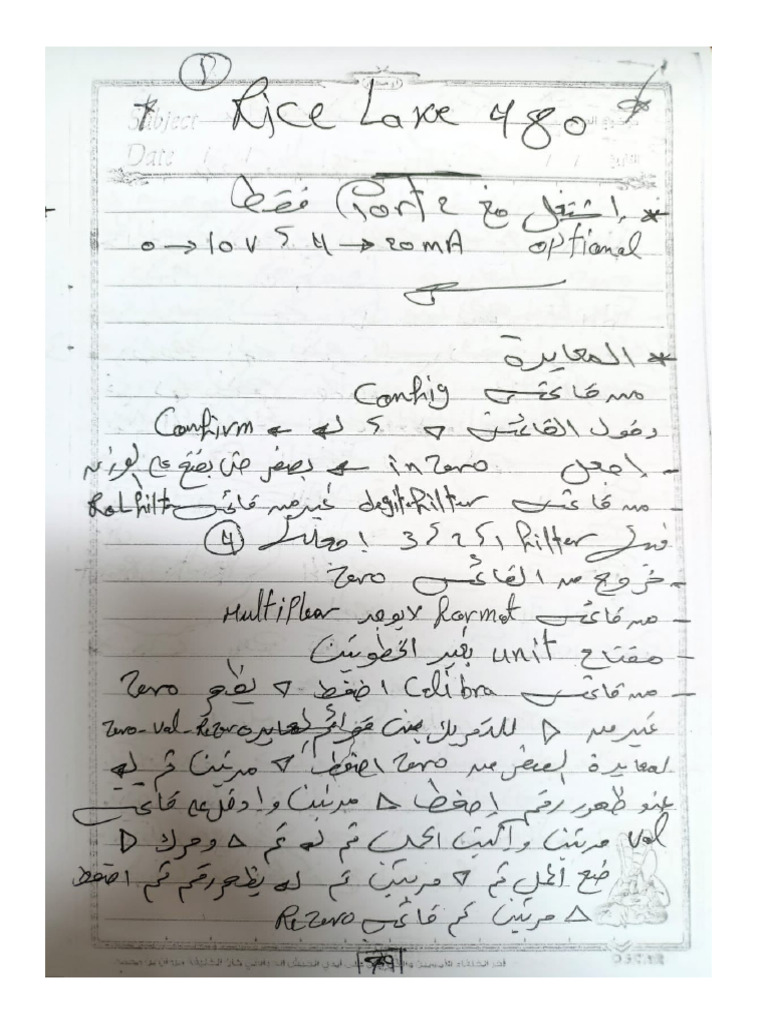 ①
Subject
* Rice Lake 480 *
Date / /
* إشتغل مع Port 2 فقط
0 → 10 V و 4 → 20 mA optional
* المعايرة
من قائمة Config
دخول القائمة ▽ و ↵ ← Confirm
- إجعل inZero ← بصفر حتى يفتح على الوزن
- من قائمة degitFilter غير من قائمة RolFilter
Filter 1 و 2 و 3 اجعلها ④
- خروج من القائمة Zero
- من قائمة Format لا يوجد Multiplear
- مفتاح unit يغير الخطوتين
- من قائمة Calibra اضغط ▽ يظهر Zero
غير من ▷ للتحريك بين قوائم المعايرة Zero - Val - Rezero
لمعايرة الصفر من Zero اضغط ▽ مرتين ثم ↵
عند ظهور رقم إضغط △ مرتين وادخل على قائمة
Val مرتين واكتب الحمل ثم ↵ ثم △ وحرك ▷
ضع الحمل ثم ▽ مرتين ثم ↵ يظهر رقم ثم اضغط
△ مرتين ثم قائمة Rezero
79